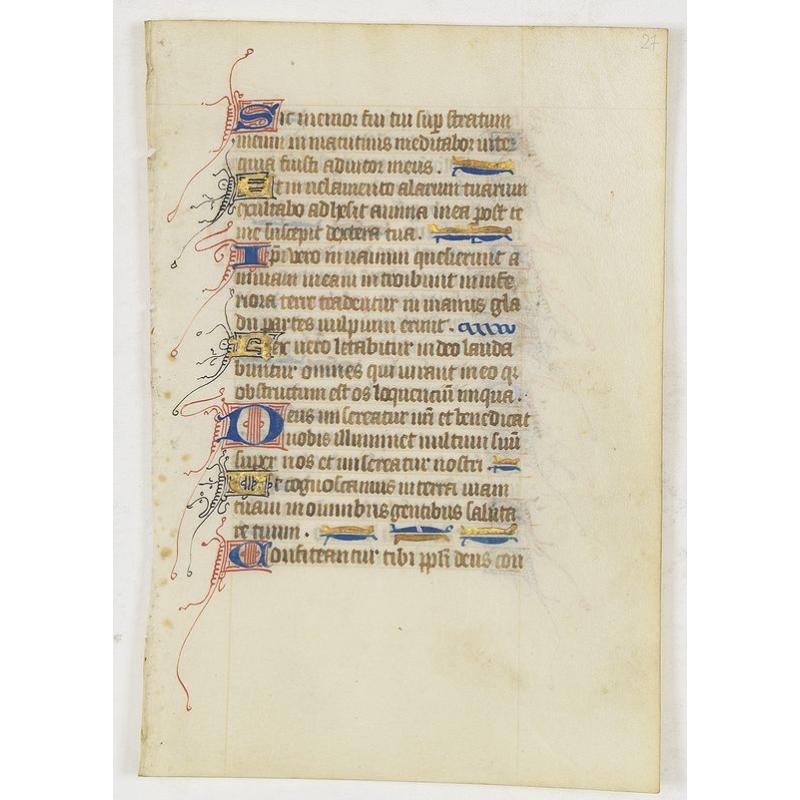 27
Sic memor fui tui sup stratum
meum in matutinis meditabor in te
quia fuisti adiutor meus.
Et in velamento alarum tuarum
exultabo adhesit anima mea post te
me suscepit dextera tua.
Ipi vero in vanum quesierunt a
nimam meam introibunt in infe
riora terre tradentur in manus gla
dii partes vulpium erunt.
Rex vero letabitur in deo lauda
buntur omnes qui iurant in eo qr
obstructum est os loquencium iniqua.
Deus misereatur nri et benedicat
nobis illuminet vultum suu
super nos et misereatur nostri.
Et cognoscamus in terra viam
tuam in omnibus gentibus saluta
re tuum.
Confiteantur tibi ppli deus con